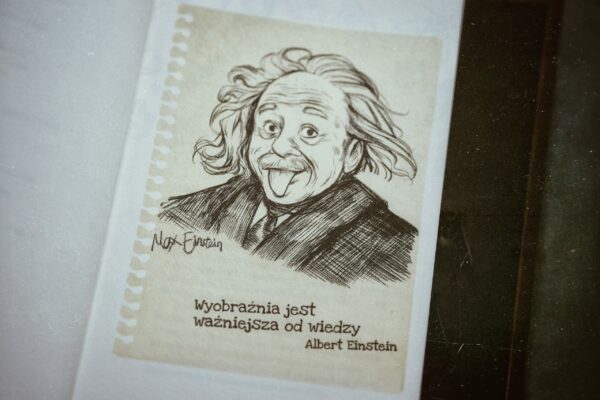 Max Einstein
Wyobraźnia jest
ważniejsza od wiedzy
Albert Einstein